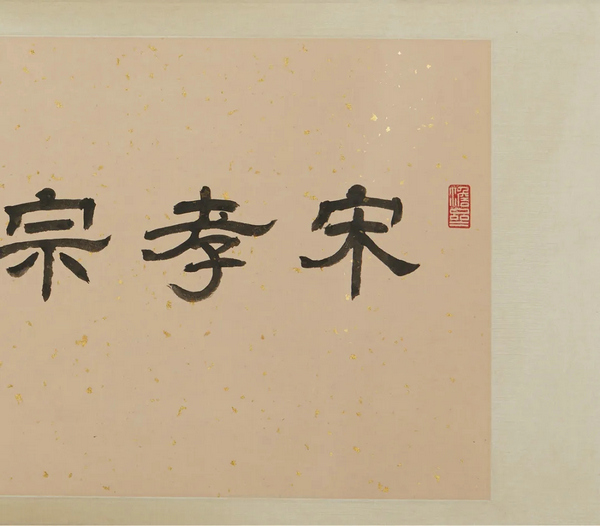 宋孝宗